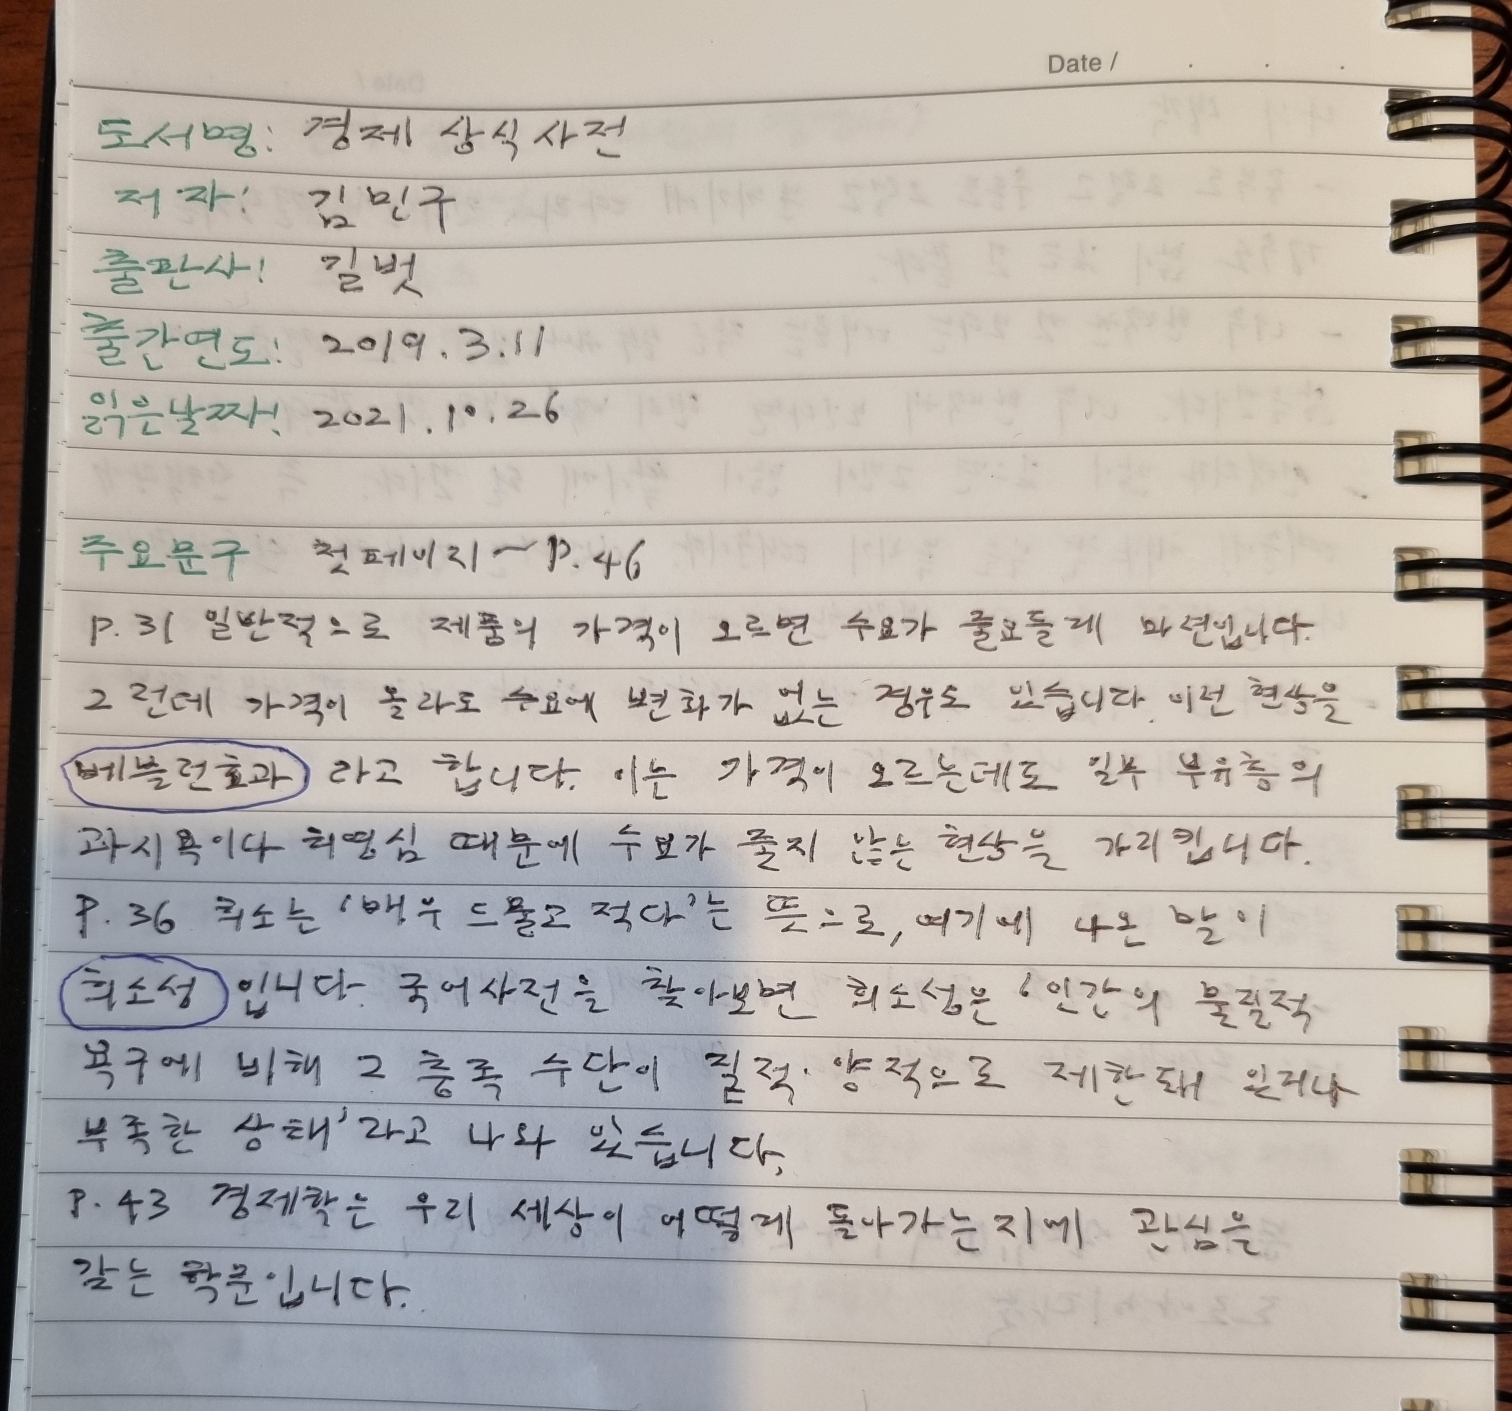 Date /
도서명: 경제 상식사전
저자: 김민구
출판사: 길벗
출간연도: 2019.3.11
읽은날짜: 2021.10.26
주요문구 첫페이지~P.46
P.31 일반적으로 제품의 가격이 오르면 수요가 줄오들게 마련입니다.
그런데 가격이 올라도 수요에 변화가 없는 경우도 있습니다. 이런 현상을
베블런효과 라고 합니다. 이는 가격이 오르는데도 일부 부유층의
과시욕이다 허영심 때문에 수요가 줄지 않는 현상을 가리킵니다.
P.36 희소는 '매우 드물고 적다'는 뜻으로, 여기에 나온 말이
희소성 입니다. 국어사전을 찾아보면 희소성은 '인간의 물질적
욕구에 비해 그 충족 수단이 질적·양적으로 제한돼 있거나
부족한 상태'라고 나와 있습니다.
P.43 경제학은 우리 세상이 어떻게 돌아가는지에 관심을
갖는 학문입니다.